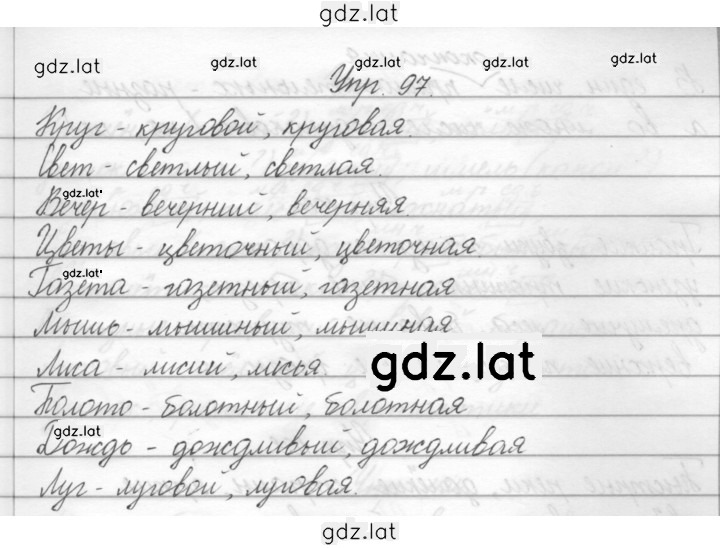 gdz.lat
gdz.lat gdz.lat gdz.lat gdz.lat
Упр. 97.
Круг - круговой, круговая.
Свет - светлый, светлая.
gdz.lat
Вечер - вечерний, вечерняя.
Цветы - цветочный, цветочная
gdz.lat
Газета - газетный, газетная
Мышь - мышиный, мышиная
Лиса - лисий, лисья
gdz.lat
Болото - болотный, болотная
gdz.lat
Дождь - дождливый, дождливая
Луг - луговой, луговая.
gdz.lat